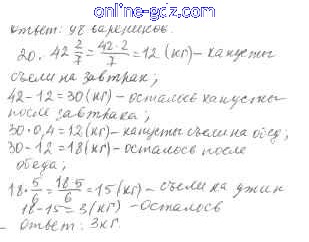 online-gdz.com
ответ: 48 вареников.
20. 42 2/7 = 42·2/7 = 12 (кг) – капусты
съели на завтрак;
42-12=30(кг) – осталось капусты
после завтрака;
30·0,4=12(кг) – капусты съели на обед;
30-12=18(кг) – осталось после
обеда;
18·5/6 = 18·5/6 = 15(кг) – съели на ужин
18-15=3(кг) – осталось
ответ: 3кг.